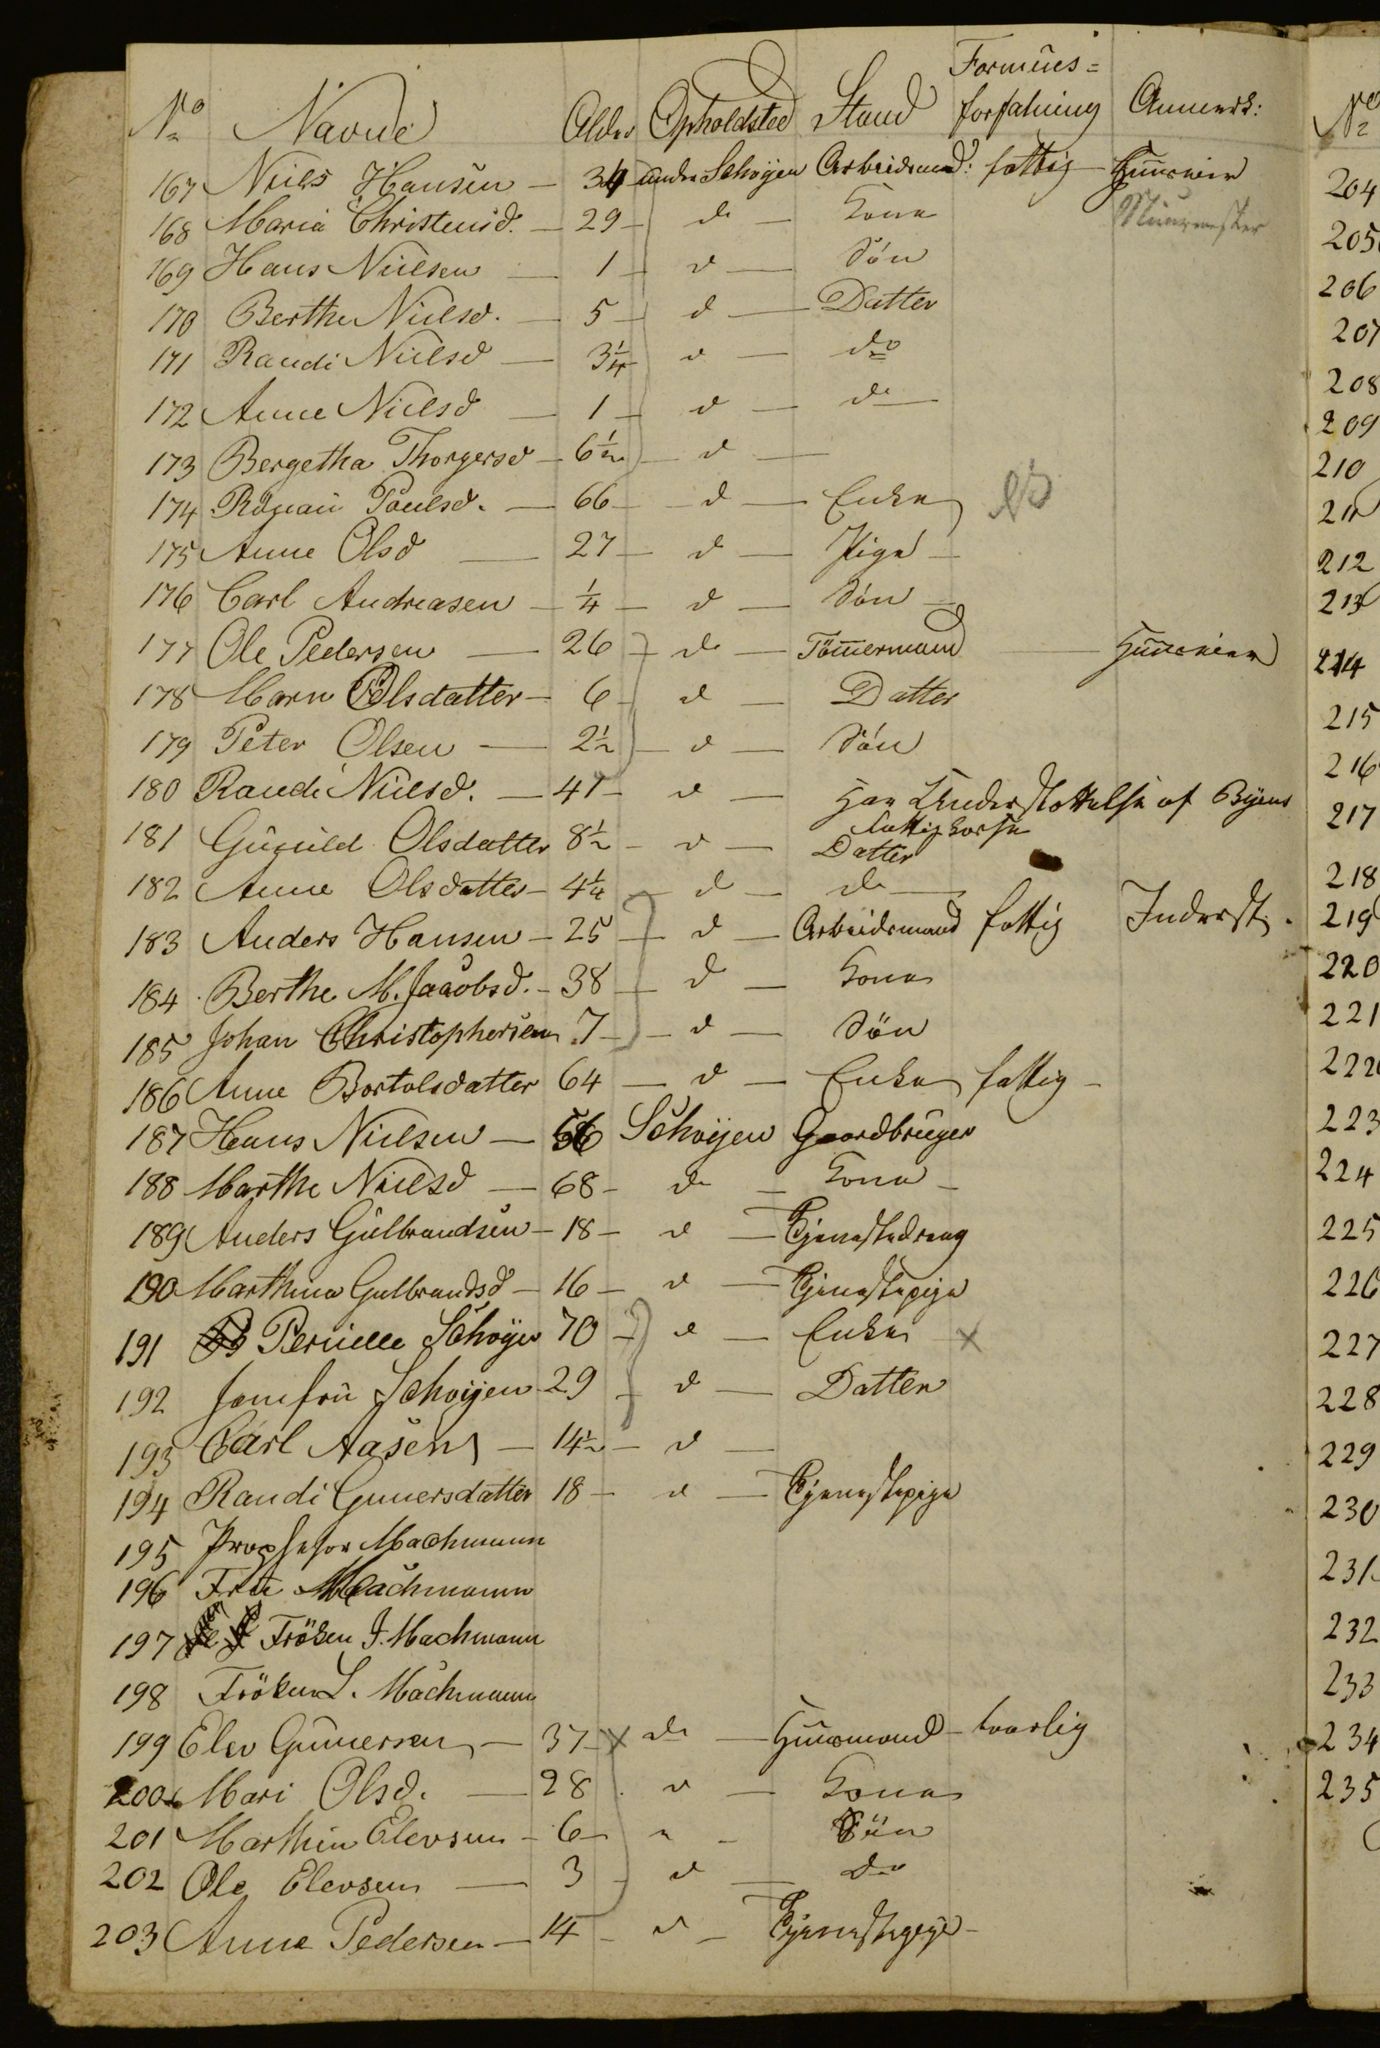 No Navne Alder Opholdsted Stand Formues= forfatning Anmerk:
167 Niels Hansen — 34 — under Schøyen Arbeidsmand: fattig — Huuseier
168 Maria Christensd. — 29 — do — Kone Muurmester
169 Hans Nielsen — 1 — d — Søn
170 Berthe Nielsd. — 5 — d — Datter
171 Randi Nielsd — 3¼ d — do
172 Anne Nielsd — 1 — d — do
173 Bergetha Thorgersd — 6½ — d —
174 Paulsd. — 66 — d — Enke
175 Anne Olsd — 27 — d — Pige —
176 Carl Andreasen — ¼ — d — Søn —
177 Ole Pedersen — 26 — do — Tömmermand — Huuseier
178 Maren Olsdatter — 6 — d — Datter
179 Peter Olsen — 2½ — d — Søn
180 Randi Nielsd. — 41 — d — Har Understøttelse af Byens
Fattigkasse
181 Gunild Olsdatter 8½ — d — Datter
182 Anne Olsdatter — 4¼ — d — do —
183 Anders Hansen — 25 — d — Arbeidsmand fattig Inderst.
184 Berthe M. Jacobsd. — 38 — d — Kone
185 Johan Christophersen 7 — d — Søn
186 Anne Bortolsdatter 64 — d — Enke fattig —
187 Hans Nielsen — 56 Schøyen Gaardbruger
188 Marthe Nielsd — 68 — do — Kone —
189 Anders Gulbrandsen — 18 — d — Tjenestedreng
190 Marthine Gulbrandsd — 16 — d — Tjenestepige
191 Pernille Schøyen 70 — d — Enke — x
192 Jomfru Schøyen 29 — d — Datter
193 Carl Aasen — 14½ — d —
194 Randi Gunersdatter 18 — d — Tjenestepige
195 Prophesor Machmann
196 Frue Machmann
197 Fröken J. Machmann
198 Fröken L. Machmann
199 Elev Gunersen — 37 x do — Huusmand — taarlig
200 Mari Olsd. — 28 d — Kone
201 Marthin Elevsen — 6 — " — Søn
202 Ole Elevsen — 3 — d — do
203 Anne Pedersen — 14 — d — Tjenestepige —
No
204
205
206
207
208
209
210
211
212
213
214
215
216
217
218
219
220
221
222
223
224
225
226
227
228
229
230
231
232
233
234
235